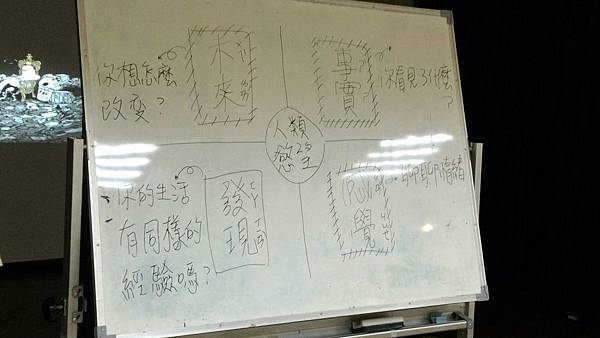 你想怎麼
改变?
未
來
事
實
你看見了什麼
?
人類
慾望
你的生活
有同樣的
經驗嗎?
發
現
感
覺
:聊聊情緒